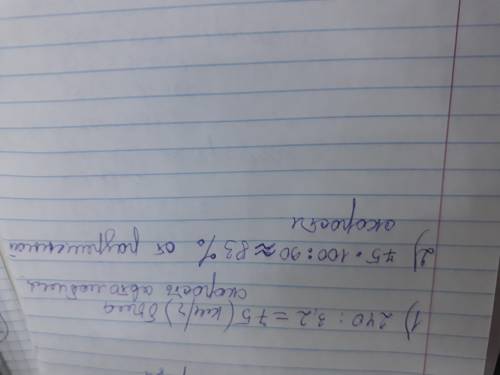 1) 240 : 3,2 = 75 (км/ч) была
скорость автомобиля
2) 75 · 100 : 90 ≈ 83 % от разрешенной
скорости